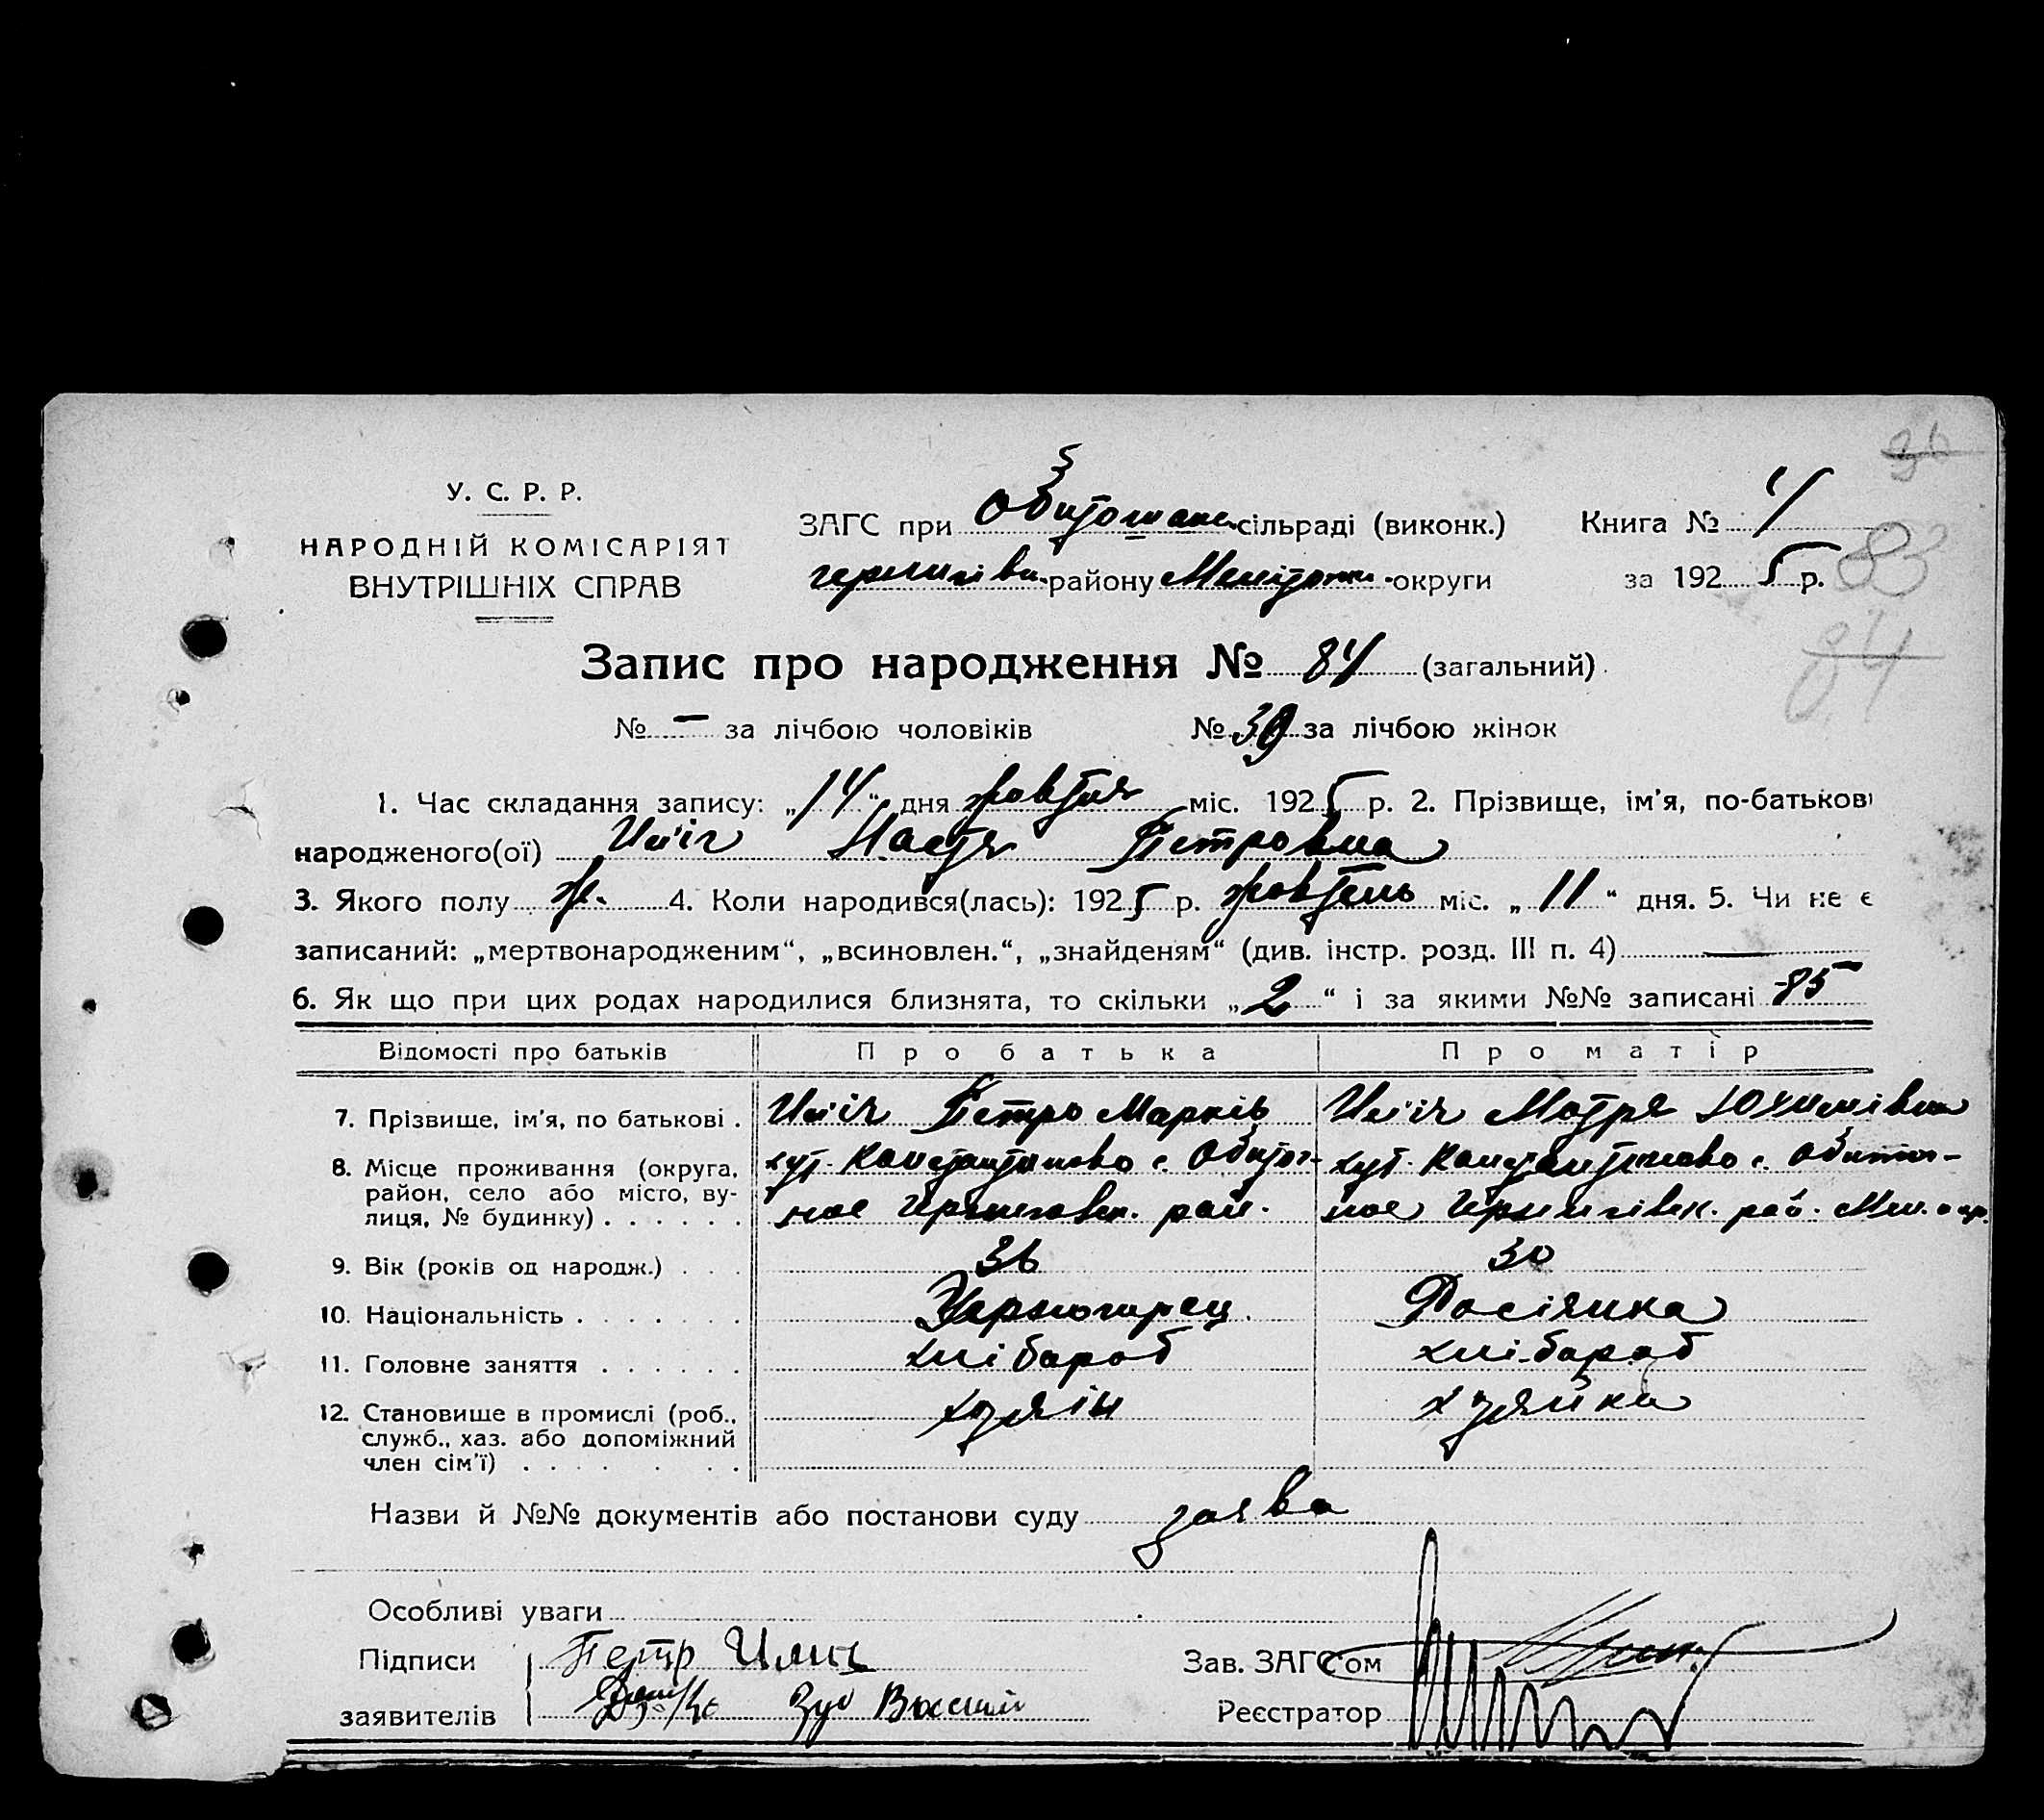 36
У. С. Р. Р.
НАРОДНІЙ КОМІСАРІЯТ
ВНУТРІШНІХ СПРАВ
ЗАГС при Обиточан. сільраді (виконк.) Книга № 4
району Меліт. округи за 1925 р. 83
84
Запис про народження № 84 (загальний)
№ — за лічбою чоловіків № 39 за лічбою жінок
1. Час складання запису: „14“ дня жовтня міс. 1925 р. 2. Прізвище, ім'я, по-батькові
народженого(ої) Иліч Настя Петровна
3. Якого полу ж. 4. Коли народився(лась): 1925 р. жовтень міс. „11“ дня. 5. Чи не є
записаний: „мертвонародженим“, „всиновлен.“, „знайденям“ (див. інстр. розд. III п. 4) —
6. Як що при цих родах народилися близнята, то скільки „2“ і за якими №№ записані 85
Відомості про батьків Про батька Про матір
7. Прізвище, ім'я, по батькові . Иліч Петро Марків Иліч Мотря Юхимівна
8. Місце проживання (округа, хут. Константиново с. Обиточ- хут. Константиново с. Обиточ-
район, село або місто, ву-
лиця, № будинку) . . . . . . ное Черниговск. рай. ное Чернигівск. рай. Мел. окр.
9. Вік (років од народж.) . . . 36 30
10. Національність . . . . . . . Черногорец. Росіянка
11. Головне заняття . . . . . . хлібароб хлі-бароб
12. Становище в промислі (роб., хузяін хузяйка
служб., хаз. або допоміжний
член сім'ї) . . . . . . .
Назви й №№ документів або постанови суду заява
Особливі уваги
Підписи Петр Илич Зав. ЗАГС'ом
заявителів Зуб Василий Реєстратор